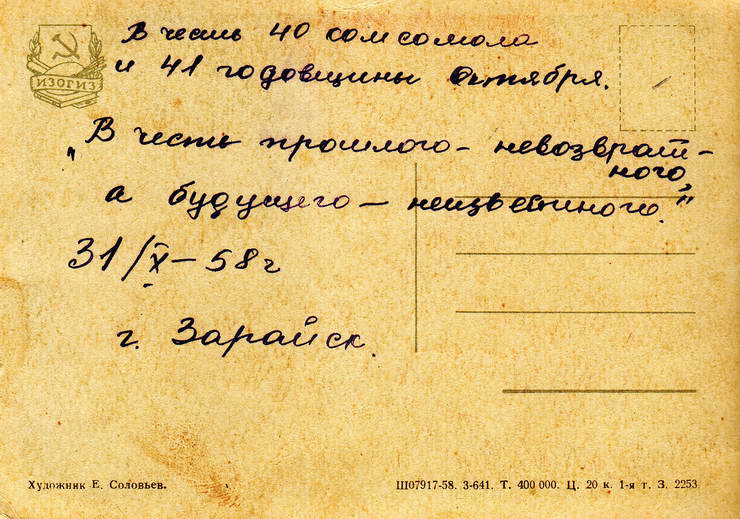 ИЗОГИЗ
В честь 40 комсомола
и 41 годовщины Октября.
„В честь прошлого – невозврат-
ного,
а будущего – неизвестного."
31/X – 58 г
г. Зарайск.
Художник Е. Соловьев.
Ш07917-58. 3-641. Т. 400 000. Ц. 20 к. 1-я т. З. 2253